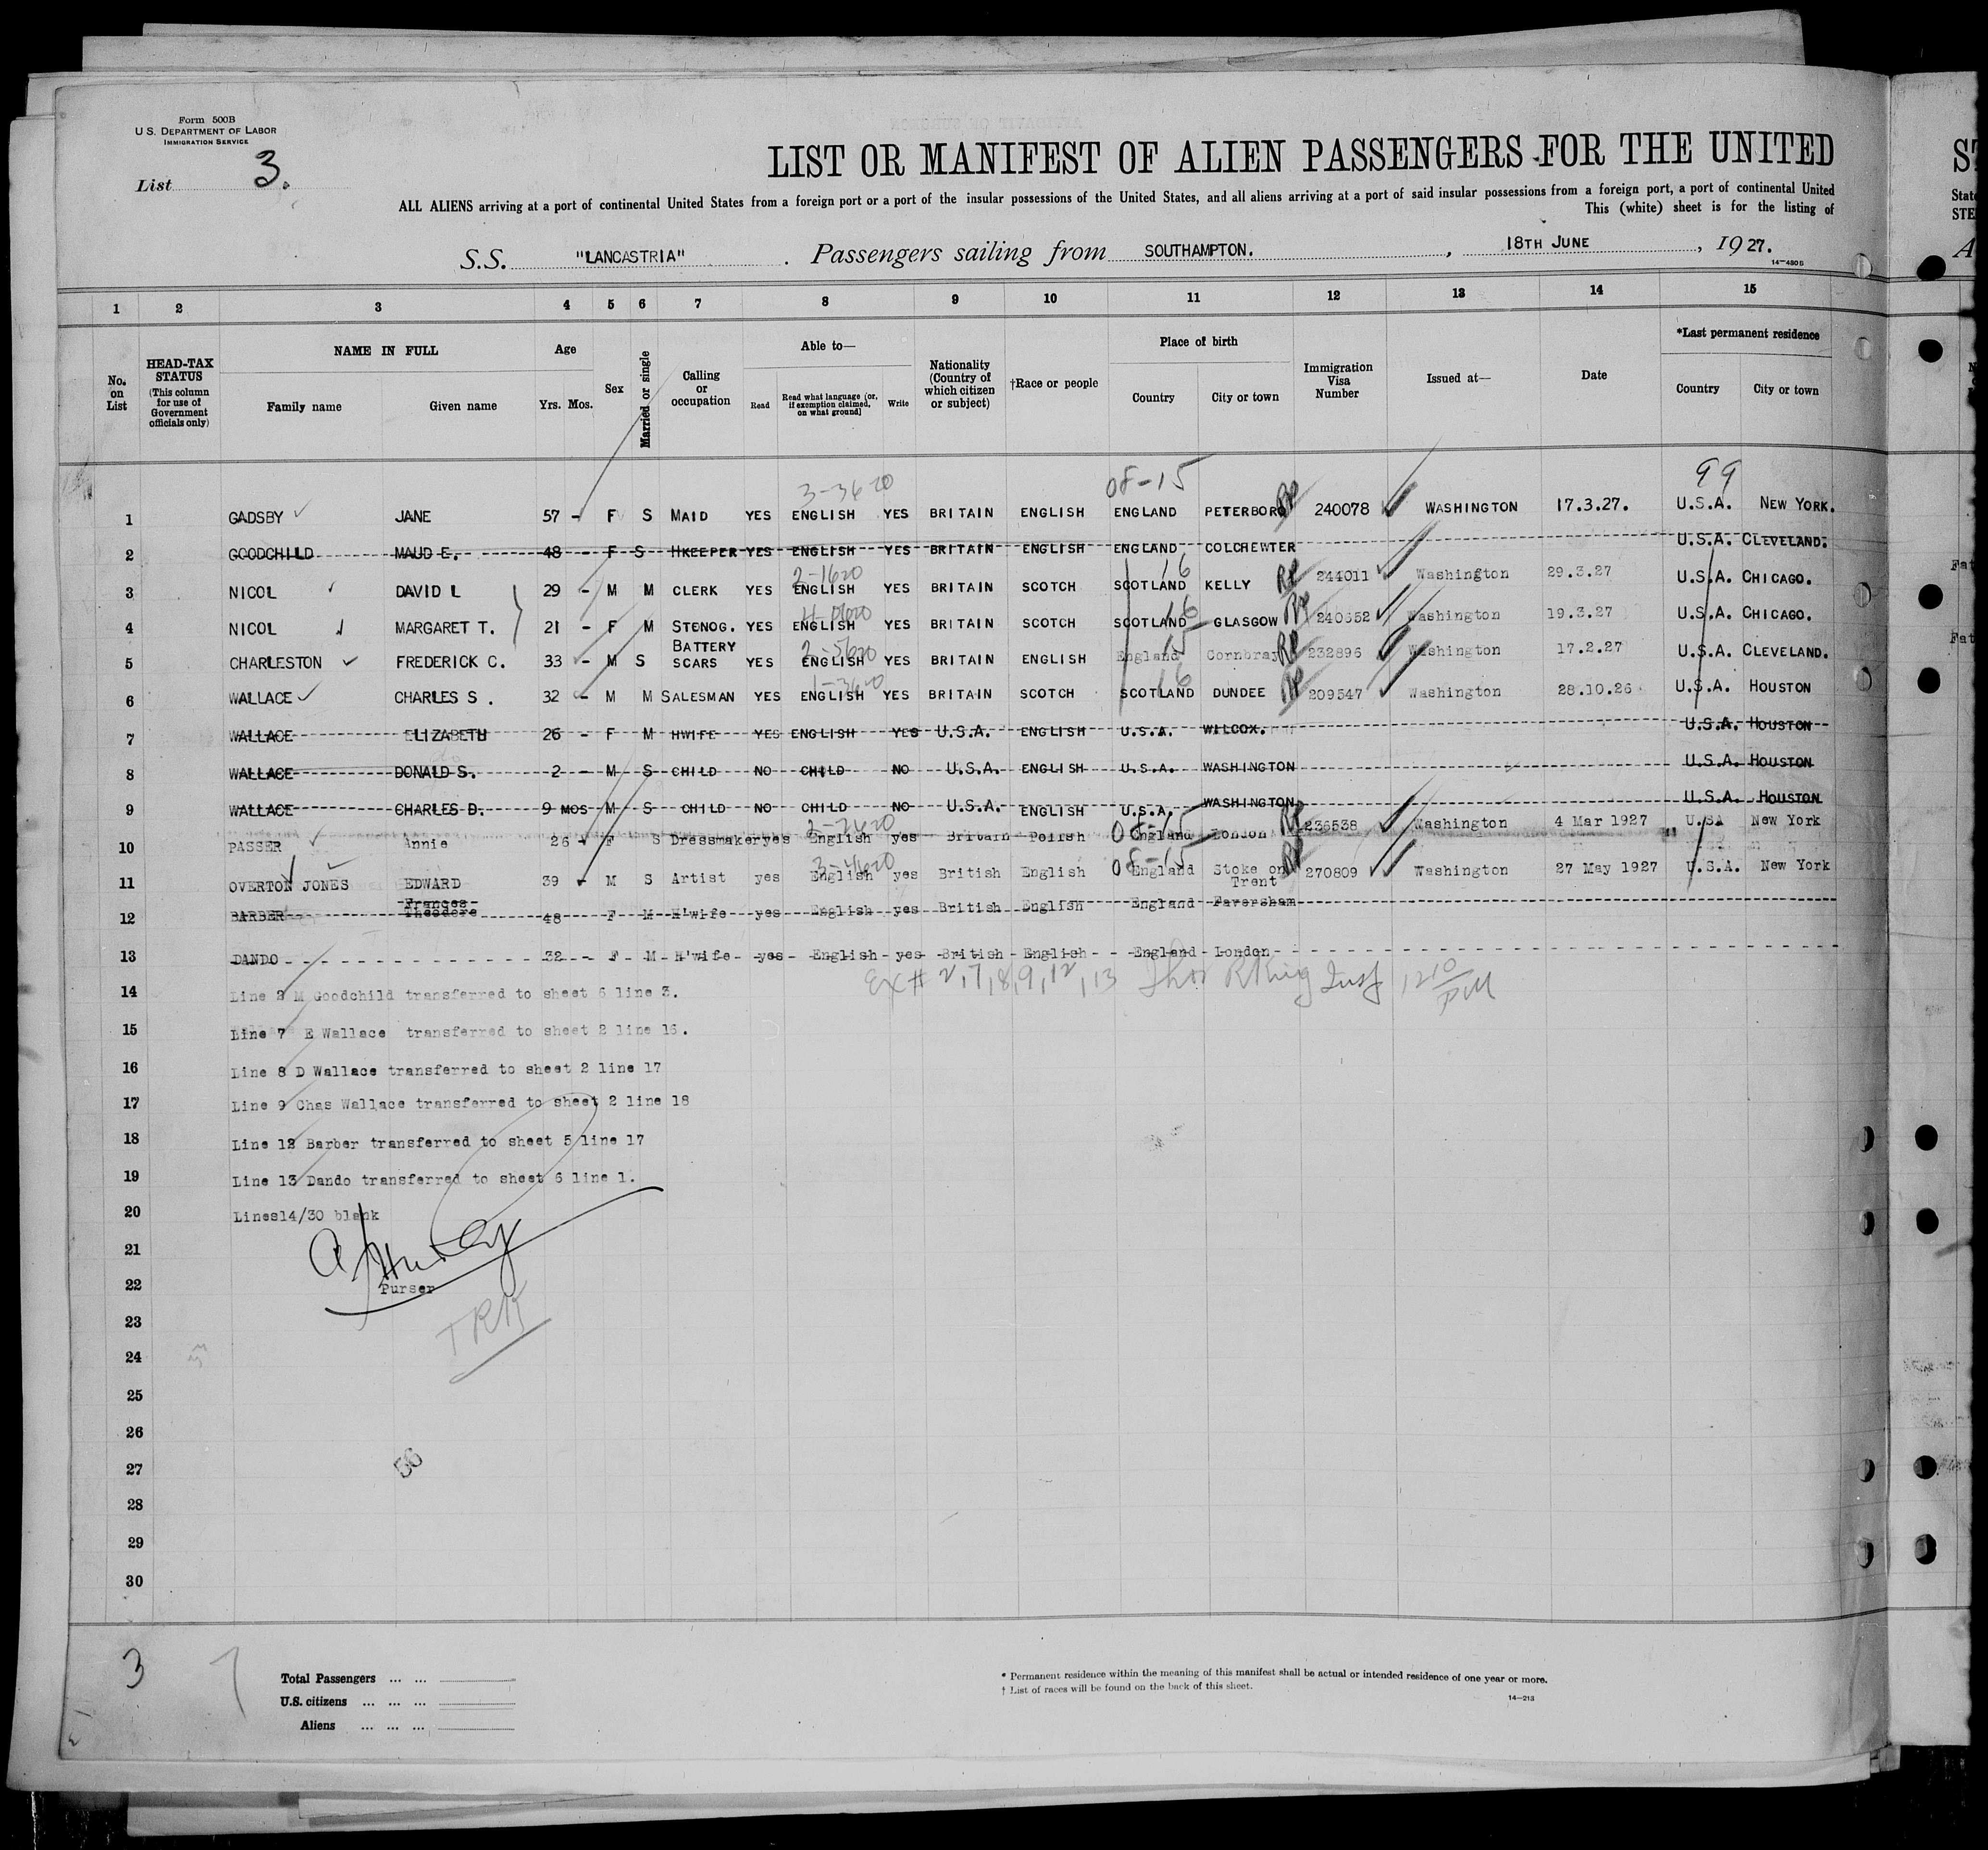 Form 500B
U.S. DEPARTMENT OF LABOR
IMMIGRATION SERVICE
List 3.
LIST OR MANIFEST OF ALIEN PASSENGERS FOR THE UNITED
ALL ALIENS arriving at a port of continental United States from a foreign port or a port of the insular possessions of the United States, and all aliens arriving at a port of said insular possessions from a foreign port, a port of continental United
This (white) sheet is for the listing of
S.S. "LANCASTRIA" . Passengers sailing from SOUTHAMPTON. , 18TH JUNE , 1927.
1 2 3 4 5 6 7 8 9 10 11 12 13 14 15
No. on List
HEAD-TAX STATUS (This column for use of Government officials only)
NAME IN FULL Family name Given name
Age Yrs. Mos.
Sex
Married or single
Calling or occupation
Able to— Read Read what language (or, if exemption claimed, on what ground) Write
Nationality (Country of which citizen or subject)
†Race or people
Place of birth Country City or town
Immigration Visa Number
Issued at—
Date
*Last permanent residence Country City or town
3-3620 08-15 99
1 GADSBY JANE 57 - F S MAID YES ENGLISH YES BRITAIN ENGLISH ENGLAND PETERBORO 240078 WASHINGTON 17.3.27. U.S.A. NEW YORK.
2 GOODCHILD MAUD E. 48 - F S HKEEPER YES ENGLISH YES BRITAIN ENGLISH ENGLAND COLCHEWTER U.S.A. CLEVELAND.
2-1620 16
3 NICOL DAVID L 29 - M M CLERK YES ENGLISH YES BRITAIN SCOTCH SCOTLAND KELLY 244011 Washington 29.3.27 U.S.A. CHICAGO.
16
4 NICOL MARGARET T. 21 - F M STENOG. YES ENGLISH YES BRITAIN SCOTCH SCOTLAND GLASGOW 240652 Washington 19.3.27 U.S.A. CHICAGO.
2-5620 15
5 CHARLESTON FREDERICK C. 33 - M S BATTERY SCARS YES ENGLISH YES BRITAIN ENGLISH England Cornbray 232896 Washington 17.2.27 U.S.A. CLEVELAND.
1-3620 16
6 WALLACE CHARLES S. 32 - M M SALESMAN YES ENGLISH YES BRITAIN SCOTCH SCOTLAND DUNDEE 209547 Washington 28.10.26 U.S.A. HOUSTON
7 WALLACE ELIZABETH 26 - F M HWIFE YES ENGLISH YES U.S.A. ENGLISH U.S.A. WILCOX. U.S.A. HOUSTON
8 WALLACE DONALD S. 2 - M S CHILD NO CHILD NO U.S.A. ENGLISH U.S.A. WASHINGTON U.S.A. HOUSTON
9 WALLACE CHARLES D. 9 MOS M S CHILD NO CHILD NO U.S.A. ENGLISH U.S.A. WASHINGTON U.S.A. HOUSTON
2-2620 08-15
10 PASSER Annie 26 F S Dressmaker yes English yes Britain Polish England London 236538 Washington 4 Mar 1927 U.SA New York
3-4620 08-15
11 OVERTON JONES EDWARD 39 - M S Artist yes English yes British English England Stoke on Trent 270809 Washington 27 May 1927 U.S.A. New York
12 BARBER Frances Theodore 48 F M H'wife yes English yes British English England Faversham
13 DANDO 32 - F M H'wife yes English yes British English England London
Ex # 2,7,8,9,12,13 Thos R King Insp 12 10 PM
14 Line 2 M Goodchild transferred to sheet 6 line 3.
15 Line 7 E Wallace transferred to sheet 2 line 16.
16 Line 8 D Wallace transferred to sheet 2 line 17
17 Line 9 Chas Wallace transferred to sheet 2 line 18
18 Line 12 Barber transferred to sheet 5 line 17
19 Line 13 Dando transferred to sheet 6 line 1.
20 Lines14/30 blank
21
22 Purser
23 TRK
24
25
26
27 56
28
29
30
3
Total Passengers ... ...
U.S. citizens ... ... ...
Aliens ... ... ...
* Permanent residence within the meaning of this manifest shall be actual or intended residence of one year or more.
† List of races will be found on the back of this sheet.
14—213